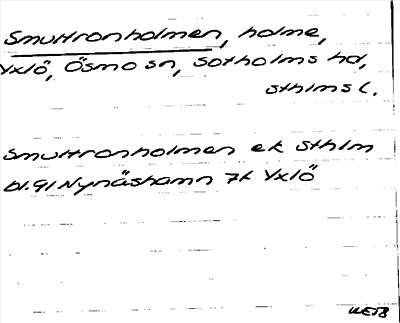 Smultronholmen, holme,
Yxlö, Ösmo sn, Sotholms hd,
Sthlms l.
Smultronholmen ek Sthlm
bl. 91 Nynäshamn 7k Yxlö